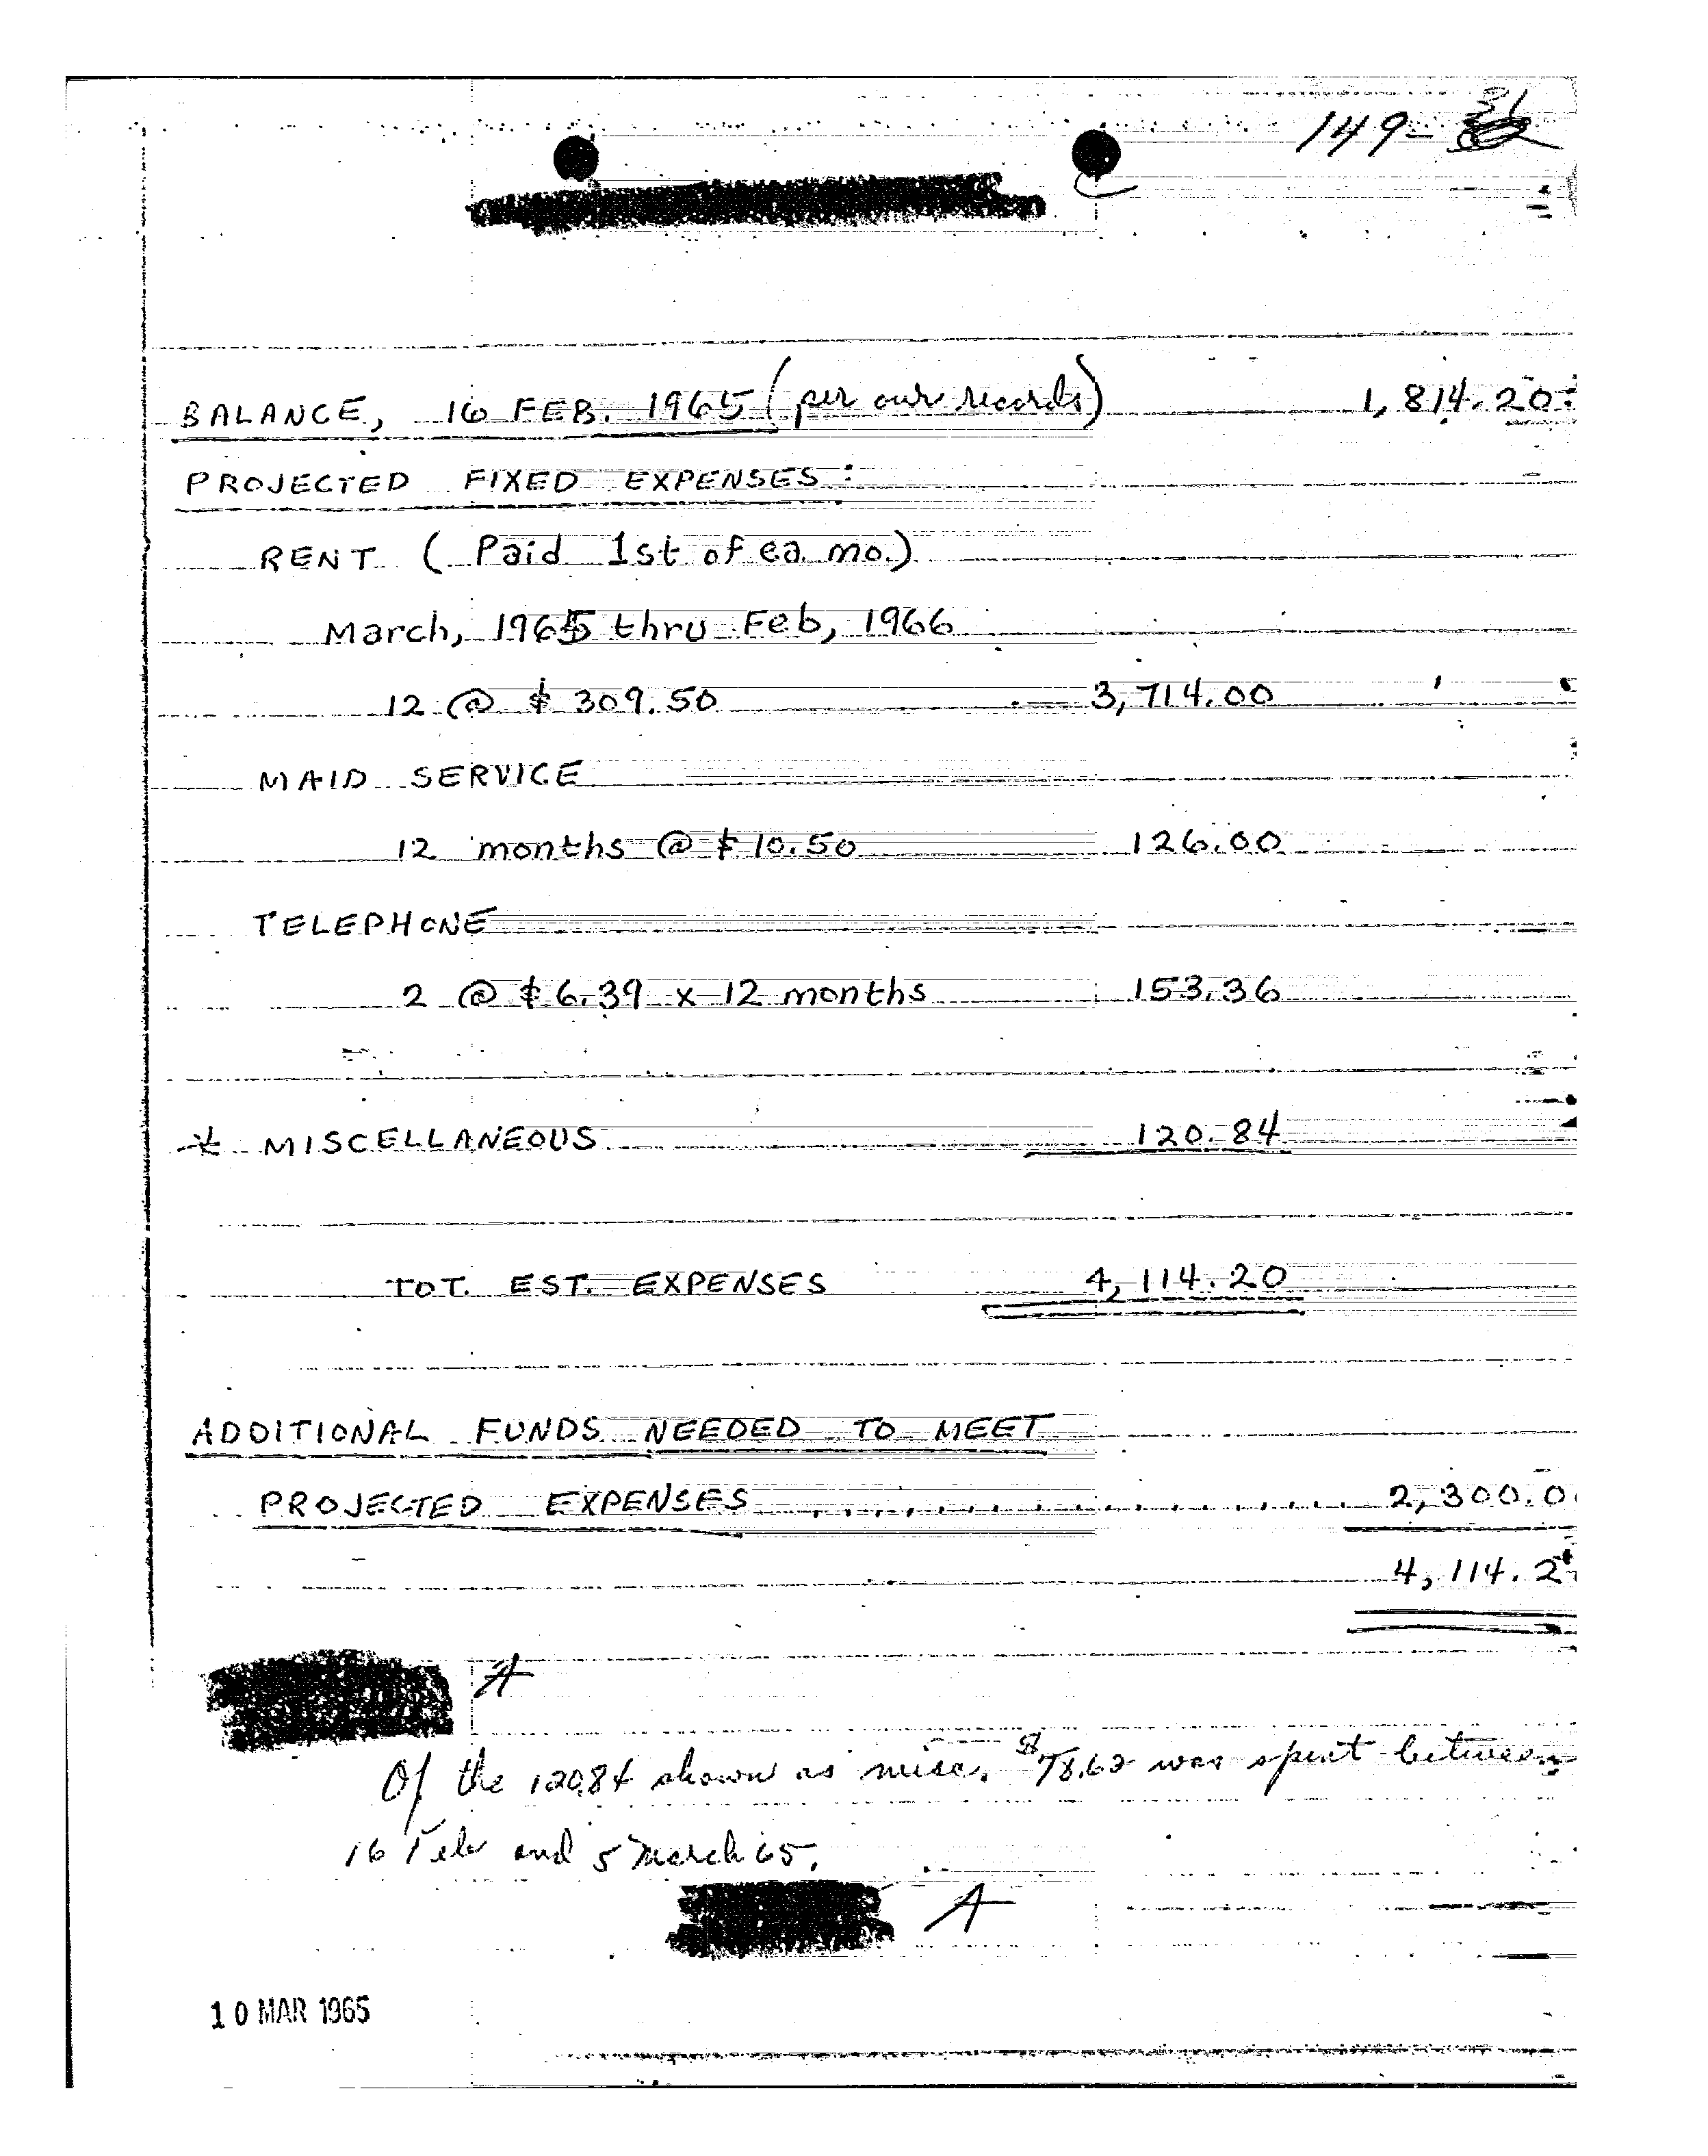 149-
BALANCE, 16 FEB. 1965 (per our records) 1,814.20
PROJECTED FIXED EXPENSES:
RENT (Paid 1st of ea. mo.)
March, 1965 thru Feb, 1966
12 @ $ 309.50 3,714.00
MAID SERVICE
12 months @ $ 10.50 126.00
TELEPHONE
2 @ $ 6.39 x 12 months 153.36
* MISCELLANEOUS 120.84
TOT. EST. EXPENSES 4,114.20
ADDITIONAL FUNDS NEEDED TO MEET
PROJECTED EXPENSES . . . . . . . . . . . . . . . . . . 2,300.0
4,114.2
A
Of the 120.84 shown as misc. $78.62 was spent between
16 Feb and 5 March 65.
A
10 MAR 1965